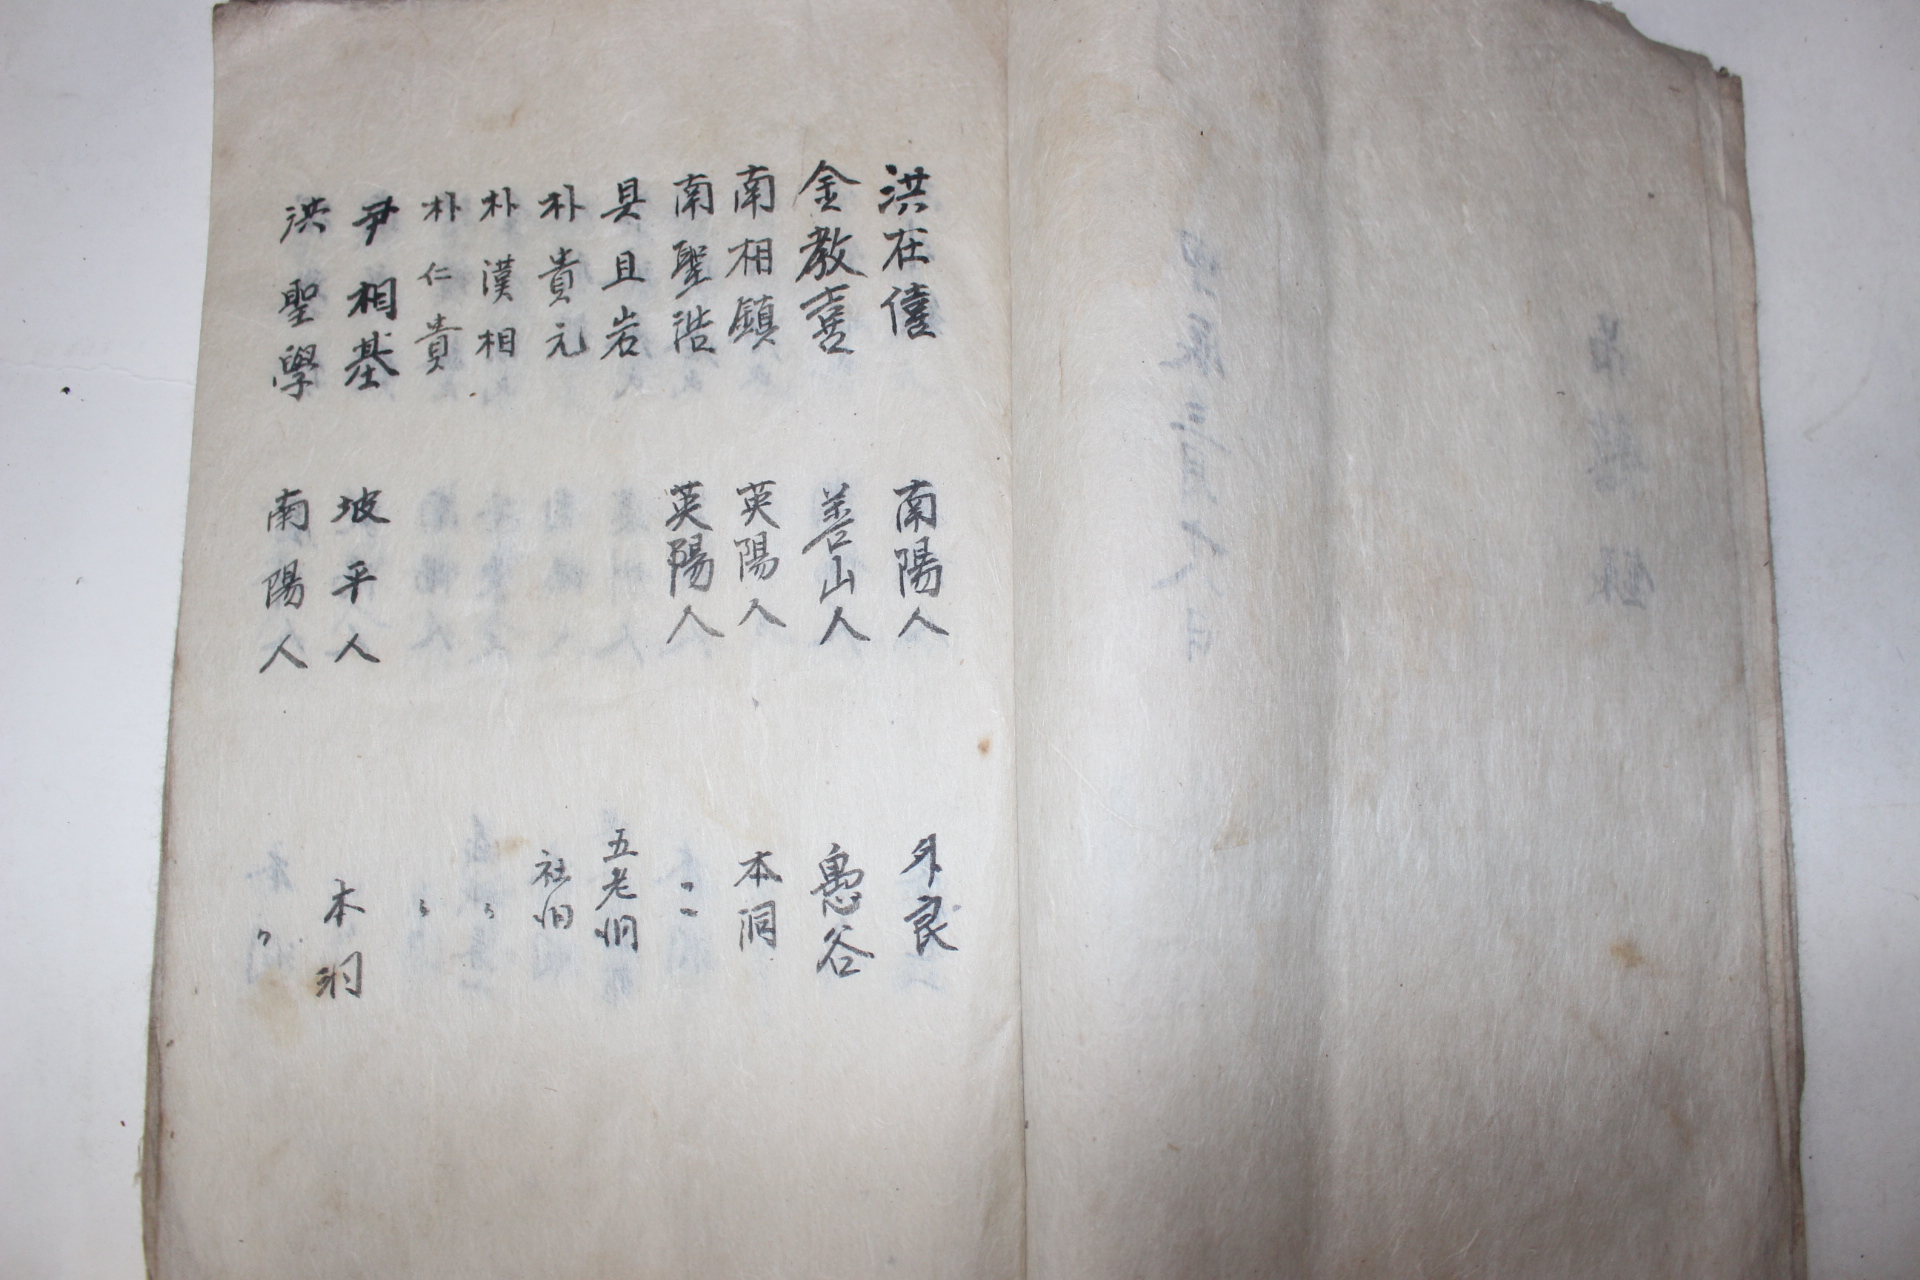 洪在僖 南陽人 外良
金教喜 善山人 愚谷
南相鎮 英陽人 本洞
南聖浩 英陽人 〻
具且岩 五老洞
朴貴元 社洞
朴漢相 〻
朴仁貴 〻
尹相基 坡平人 本洞
洪聖學 南陽人 〻